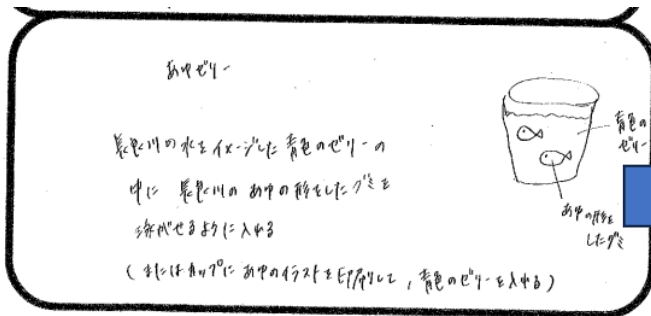 あゆゼリー
長良川の水をイメージした青色のゼリーの
中に 長良川のあゆの形をしたグミを
泳がせるように入れる
(またはカップにあゆのイラストを印刷して,青色のゼリーを入れる)
青色の
ゼリー
あゆの形を
したグミ